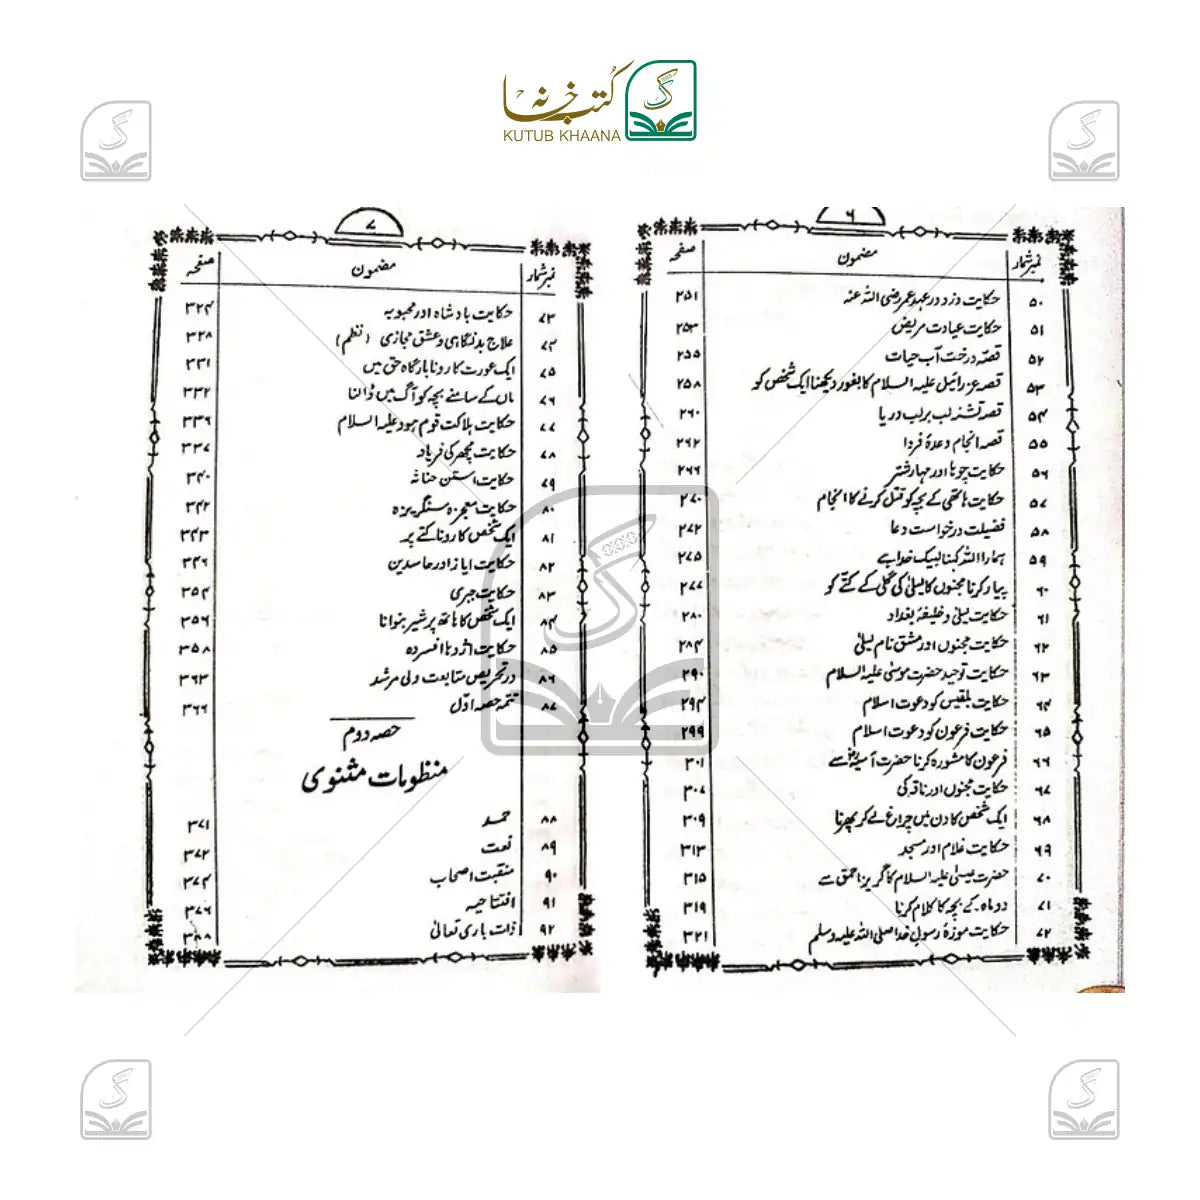 کتب خانہ
KUTUB KHAANA
۶
نمبر شمار مضمون صفحہ
۵۰ حکایت دزد در عہد عمر رضی اللہ عنہ ۲۵۱
۵۱ حکایت عیادت مریض ۲۵۳
۵۲ قصہ درخت آب حیات ۲۵۵
۵۳ قصہ عزرائیل علیہ السلام کا بغور دیکھنا ایک شخص کو ۲۵۸
۵۴ قصہ تشنہ لب بر لب دریا ۲۶۰
۵۵ قصہ انجام وعدۂ فردا ۲۶۲
۵۶ حکایت چوہا اور مہار شتر ۲۶۶
۵۷ حکایت ہاتھی کے بچہ کو قتل کرنے کا انجام ۲۷۰
۵۸ فضیلت درخواست دعا ۲۷۲
۵۹ ہمارا اللہ کہنا لبیک خدا ہے ۲۷۵
۶۰ پیار کرنا مجنوں کا لیلیٰ کی گلی کے کتے کو ۲۷۷
۶۱ حکایت لیلیٰ و خلیفۂ بغداد ۲۸۰
۶۲ حکایت مجنوں اور مشق نام لیلیٰ ۲۸۴
۶۳ حکایت توحید حضرت موسیٰ علیہ السلام ۲۹۰
۶۴ حکایت بلقیس کو دعوت اسلام ۲۹۴
۶۵ حکایت فرعون کو دعوت اسلام ۲۹۹
۶۶ فرعون کا مشورہ کرنا حضرت آسیہؓ سے ۳۰۱
۶۷ حکایت مجنوں اور ناقہ کی ۳۰۷
۶۸ ایک شخص کا دن میں چراغ لے کر پھرنا ۳۰۹
۶۹ حکایت غلام اور مسجد ۳۱۳
۷۰ حضرت عیسیٰ علیہ السلام کا گریز احمق سے ۳۱۵
۷۱ دو ماہ کے بچہ کا کلام کرنا ۳۱۹
۷۲ حکایت موزۂ رسول خدا صلی اللہ علیہ وسلم ۳۲۱
۷
نمبر شمار مضمون صفحہ
۷۳ حکایت بادشاہ اور محبوبہ ۳۲۴
۷۴ علاج بدنگاہی و عشق مجازی (نظم) ۳۲۸
۷۵ ایک عورت کا رونا بارگاہ حق میں ۳۳۱
۷۶ ماں کے سامنے بچہ کو آگ میں ڈالنا ۳۳۲
۷۷ حکایت ہلاکت قوم ہود علیہ السلام ۳۳۶
۷۸ حکایت مچھر کی فریاد ۳۳۷
۷۹ حکایت استن حنانہ ۳۴۰
۸۰ حکایت معجزہ سنگریزہ ۳۴۲
۸۱ ایک شخص کا رونا کتے پر ۳۴۳
۸۲ حکایت ایاز اور حاسدین ۳۴۶
۸۳ حکایت جبری ۳۵۴
۸۴ ایک شخص کا ہاتھ پر شیر بنوانا ۳۵۶
۸۵ حکایت اژدہا افسردہ ۳۵۸
۸۶ در تحریص متابعت ولی مرشد ۳۶۳
۸۷ تتمہ حصہ اوّل ۳۶۶
حصہ دوم
منظومات مثنوی
۸۸ حمد ۳۷۱
۸۹ نعت ۳۷۲
۹۰ منقبت اصحاب ۳۷۴
۹۱ افتتاحیہ ۳۷۶
۹۲ ذات باری تعالیٰ